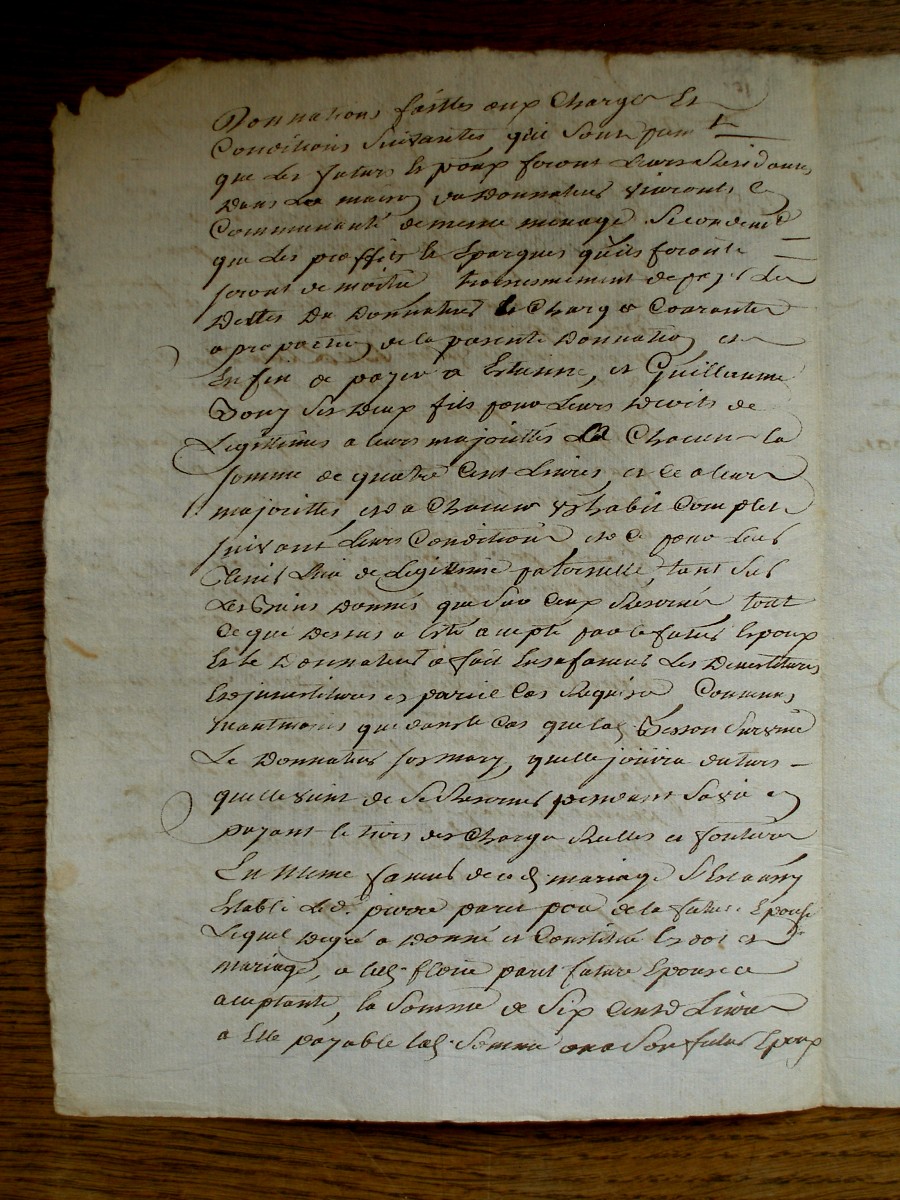 Donnations faittes aux Charges Et
Conditions Suivantes, qui Sont premt
que Les futurs Epoux feront Leurs Residances
Dans La maison du Donnateur vivronts En
Communauté de meme menage Secondemt
que Les proffits et Epargnes quils feronts
seront de moitié troisiemement de payer Les
Dettes Du Donnateur et Charges Courantes
a proportion de la presente Donnation et
Enfin de payer a Estienne, et Guillaume
ses Deux fils pour Leurs Droits de
Legitimes a leurs majorittés a Chacun la
somme de quatre Cent Livres, et Ce a leurs
majorittes, et a Chacun un habit Complet
suivant Leurs Conditions et ce pour tout
de Legitime paternelle, tant sur
Les Biens Donnés que Sur Ceux Reservés tout
Ce que Dessus a Eté accepté par le futur Epoux
Et le Donnateur a fait En sa faveur Les Devestitures
Et investitures en pareil Cas Requises Convenus
neantmoins que dans le Cas que lad. Besson Survive
Le Donnateur son mary, quelle jouira du tiers
de Se Reserver pendant Sa vie En
payant le tiers des Charges Reelles et foncieres
En Meme faveur de ced. mariage S'Est aussy
Etabli Led. pierre paret pere de la future Epouse
Lequel Degré a Donné et Constitué En dot et
mariage, a lad. fleurie paret future Epouse
acceptante, la Somme de Six Cents Livres
a Elle payable lad. Somme ou a Son futur Epoux